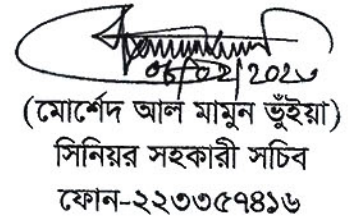 (মোর্শেদ আল মামুন ভুঁইয়া)
সিনিয়র সহকারী সচিব
ফোন-২২৩৩৫৭৪১৬